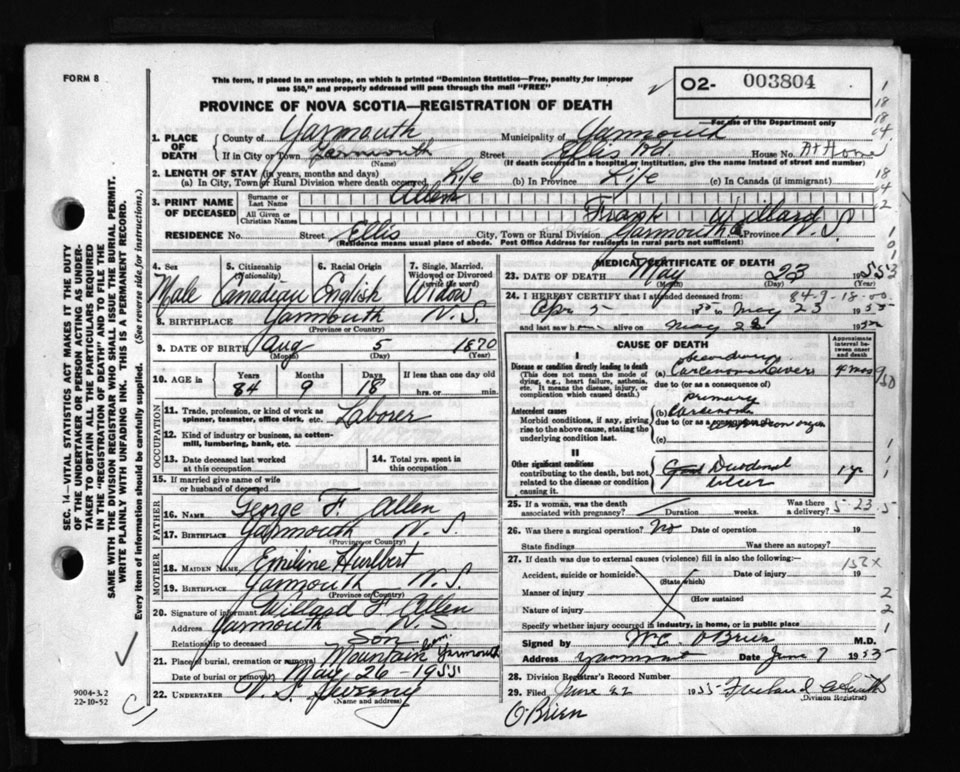 FORM 8
This form, if placed in an envelope, on which is printed "Dominion Statistics—Free, penalty for improper
use $50," and properly addressed will pass through the mail "FREE"
PROVINCE OF NOVA SCOTIA—REGISTRATION OF DEATH
O2- 003804
For use of the Department only
1. PLACE OF DEATH
County of Yarmouth Municipality of Yarmouth
If in City or Town Yarmouth Street Ellis Rd. House No. At Home
(Name) (If death occurred in a hospital or institution, give the name instead of street and number)
2. LENGTH OF STAY (in years, months and days)
(a) In City, Town or Rural Division where death occurred Life (b) In Province Life (c) In Canada (if immigrant)
3. PRINT NAME OF DECEASED
Surname or Last Name Allen
All Given or Christian Names Frank Willard
RESIDENCE No. Street Ellis City, Town or Rural Division Yarmouth Province N.S.
(Residence means usual place of abode. Post Office Address for residents in rural parts not sufficient)
4. Sex Male
5. Citizenship (Nationality) Canadian
6. Racial Origin English
7. Single, Married, Widowed or Divorced (write the word) Widow
8. BIRTHPLACE Yarmouth N.S.
(Province or Country)
9. DATE OF BIRTH Aug 5 1870
(Month) (Day) (Year)
10. AGE in Years Months Days If less than one day old
84 9 18 hrs. or min.
OCCUPATION
11. Trade, profession, or kind of work as spinner, teamster, office clerk, etc. Laborer
12. Kind of industry or business, as cotton-mill, lumbering, bank, etc.
13. Date deceased last worked at this occupation
14. Total yrs. spent in this occupation
15. If married give name of wife or husband of deceased
FATHER
16. NAME George F. Allen
17. BIRTHPLACE Yarmouth N.S.
(Province or Country)
MOTHER
18. MAIDEN NAME Emiline Hurlbert
19. BIRTHPLACE Yarmouth N.S.
(Province or Country)
20. Signature of informant Willard F. Allen
Address Yarmouth N.S.
Relationship to deceased Son
21. Place of burial, cremation or removal Mountain Cem. Yarmouth
Date of burial or removal May 26 - 1955
22. UNDERTAKER V. S. Sweeny
(Name and address)
MEDICAL CERTIFICATE OF DEATH
23. DATE OF DEATH May 23 1955
(Month) (Day)
84-9-18-00
24. I HEREBY CERTIFY that I attended deceased from:
Apr 5 19 to May 23 1955
and last saw h alive on May 22 19
CAUSE OF DEATH
Approximate interval between onset and death
I
Disease or condition directly leading to death
(This does not mean the mode of dying, e.g., heart failure, asthenia, etc. It means the disease, injury, or complication which caused death.)
secondary
(a) Carcinoma Liver 4 mos
due to (or as a consequence of)
Antecedent causes
Morbid conditions, if any, giving rise to the above cause, stating the underlying condition last.
primary
(b) Carcinoma
due to (or as a consequence of)
(c)
II
Other significant conditions
contributing to the death, but not related to the disease or condition causing it.
Duodenal ulcer 1 yr
25. If a woman, was the death associated with pregnancy? Duration weeks. Was there a delivery?
5-23-5
26. Was there a surgical operation? No Date of operation 19
State findings Was there an autopsy?
27. If death was due to external causes (violence) fill in also the following:
Accident, suicide or homicide? Date of injury 19
(State which)
Manner of injury
(How sustained
Nature of injury
Specify whether injury occurred in industry, in home, or in public place
Signed by W.C. O'Brien M.D.
Address Yarmouth Date June 7 1955
28. Division Registrar's Record Number
29. Filed June 22 1955
(Division Registrar)
O'Brien
SEC. 14—VITAL STATISTICS ACT MAKES IT THE DUTY
OF THE UNDERTAKER OR PERSON ACTING AS UNDER-
TAKER TO OBTAIN ALL THE PARTICULARS REQUIRED
IN THE "REGISTRATION OF DEATH" AND TO FILE THE
SAME WITH THE DIVISION REGISTRAR WHO SHALL ISSUE THE BURIAL PERMIT.
WRITE PLAINLY WITH UNFADING INK. THIS IS A PERMANENT RECORD.
Every item of information should be carefully supplied. (See reverse side for instructions).
9004-3.2
22-10-52